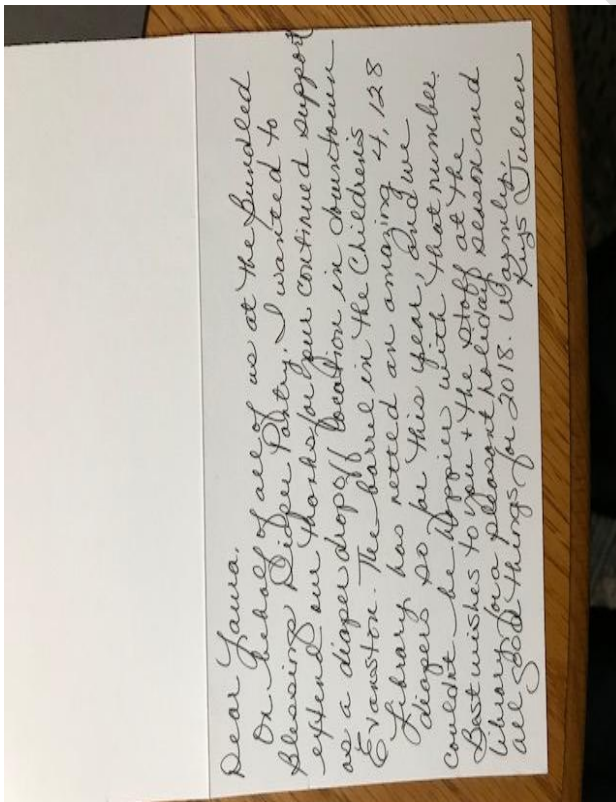 Dear Laura,
On behalf of all of us at the Bundled
Blessings Diaper Pantry, I wanted to
extend our thanks for your continued support
as a diaper dropoff location in downtown
Evanston. The barrel in the Children's
Library has netted an amazing 4,128
diapers so far this year, and we
couldn't be happier with that number.
Best wishes to you + the staff at the
library for a pleasant holiday season and
all good things for 2018. Warmly,
Juleen